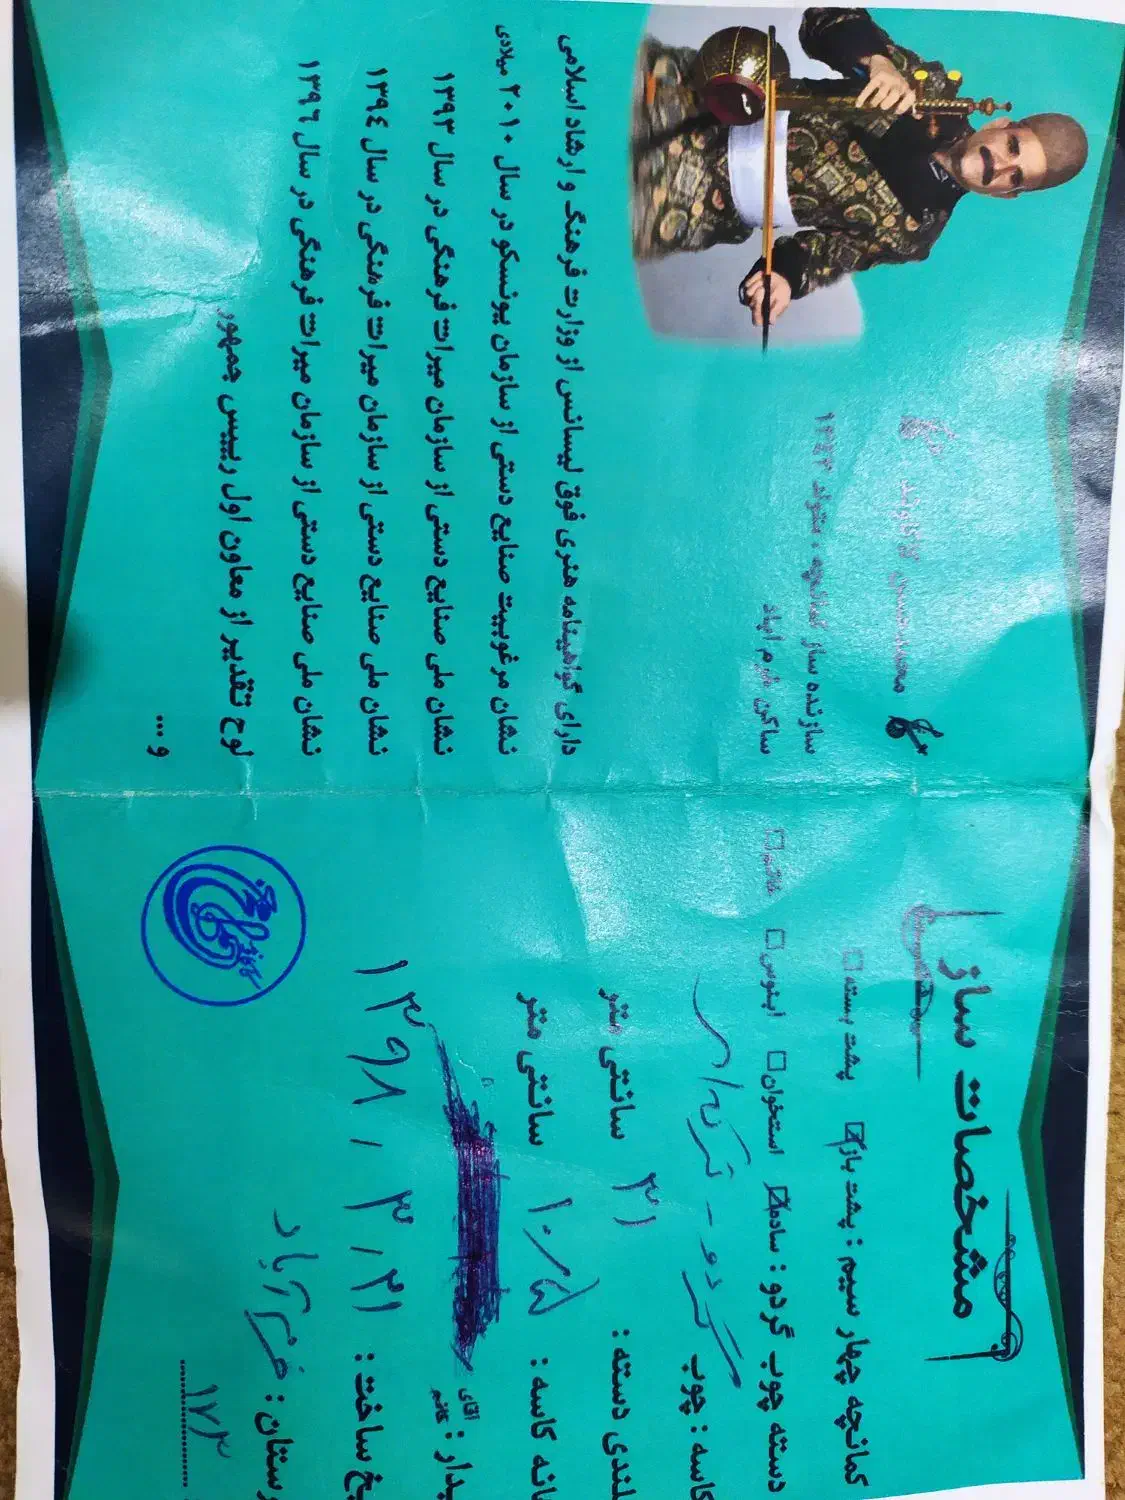 مشخصات ساز
کمانچه چهار سیم : پشت باز ☑ پشت بسته □
دسته چوب گردو : ساده ☑ استخوان □ ابنوس □ خاتم □
کاسه : چوب گردو - ترکه ای
بلندی دسته : ۳۱ سانتی متر
دهانه کاسه : ۱۰/۵ سانتی متر
آقای
خانم
تاریخ ساخت : ۱۳۹۸/۳/۲۱
خرم آباد
۱۷۳
محمدحسین
سازنده ساز کمانچه ، متولد ۱۳۴۳
ساکن خرم اباد
دارای گواهینامه هنری فوق لیسانس از وزارت فرهنگ و ارشاد اسلامی
نشان مرغوبیت صنایع دستی از سازمان یونسکو در سال ۲۰۱۰ میلادی
نشان ملی صنایع دستی از سازمان میراث فرهنگی در سال ۱۳۹۳
نشان ملی صنایع دستی از سازمان میراث فرهنگی در سال ۱۳۹۴
نشان ملی صنایع دستی از سازمان میراث فرهنگی در سال ۱۳۹۶
لوح تقدیر از معاون اول رییس جمهور
و ...